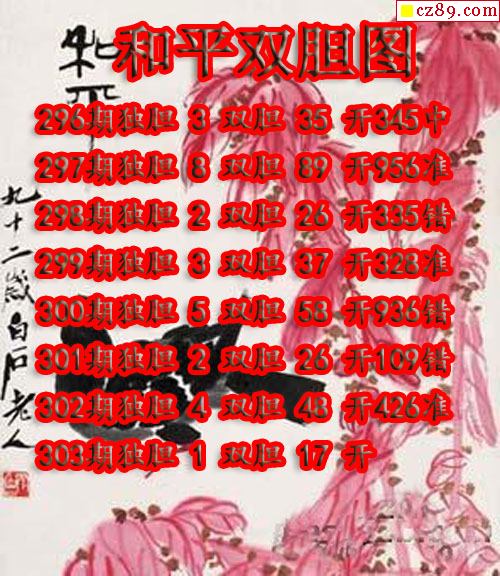 cz89.com
和平双胆图
和平
296期独胆 3 双胆 35 开345中
297期独胆 8 双胆 89 开956准
298期独胆 2 双胆 26 开335错
299期独胆 3 双胆 37 开328准
300期独胆 5 双胆 58 开936错
301期独胆 2 双胆 26 开109错
302期独胆 4 双胆 48 开426准
303期独胆 1 双胆 17 开
九十二岁白石老人